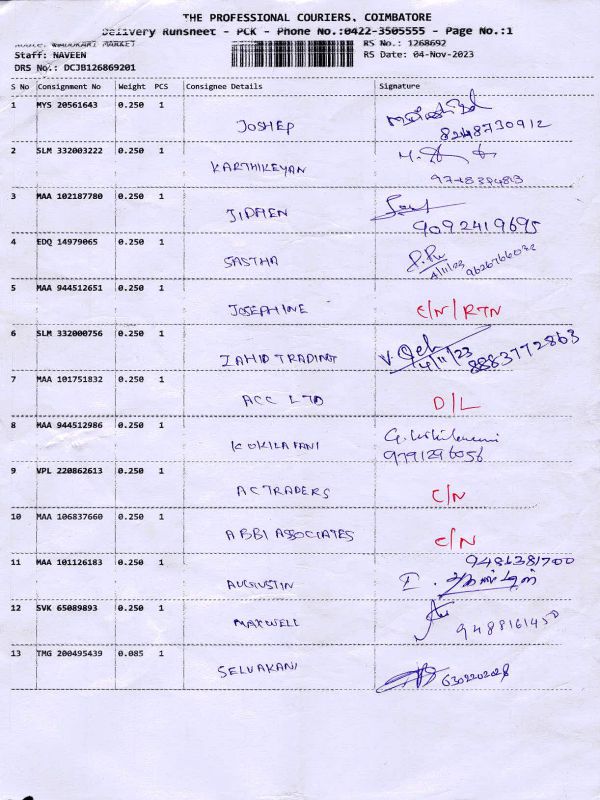 THE PROFESSIONAL COURIERS, COIMBATORE
Delivery Runsheet - PCK - Phone No.:0422-3505555 - Page No.:1
MARKET
RS No.: 1268692
Staff: NAVEEN
RS Date: 04-Nov-2023
DRS No.: DCJB126869201
S No Consignment No Weight PCS Consignee Details Signature
1 MYS 20561643 0.250 1
JOSHEP
8248730912
2 SLM 332003222 0.250 1
KARTHIKEYAN
3 MAA 102187780 0.250 1
9092419695
4 EDQ 14979065 0.250 1
SASTHA
4/11/23 9626766032
5 MAA 944512651 0.250 1
JOSEPHINE C/N/RTN
6 SLM 332000756 0.250 1
ZAHID TRADING
4/11/23 8883772863
7 MAA 101751832 0.250 1
ACC LTD D/L
8 MAA 944512986 0.250 1
9791296056
9 VPL 220862613 0.250 1
AC TRADERS C/N
10 MAA 106837660 0.250 1
ABBI ASSOCIATES C/N
11 MAA 101126183 0.250 1
AUGUSTIN
12 SVK 65089893 0.250 1
MAXWELL
9488161450
13 TMG 200495439 0.085 1
SELVAKANI
6302202028